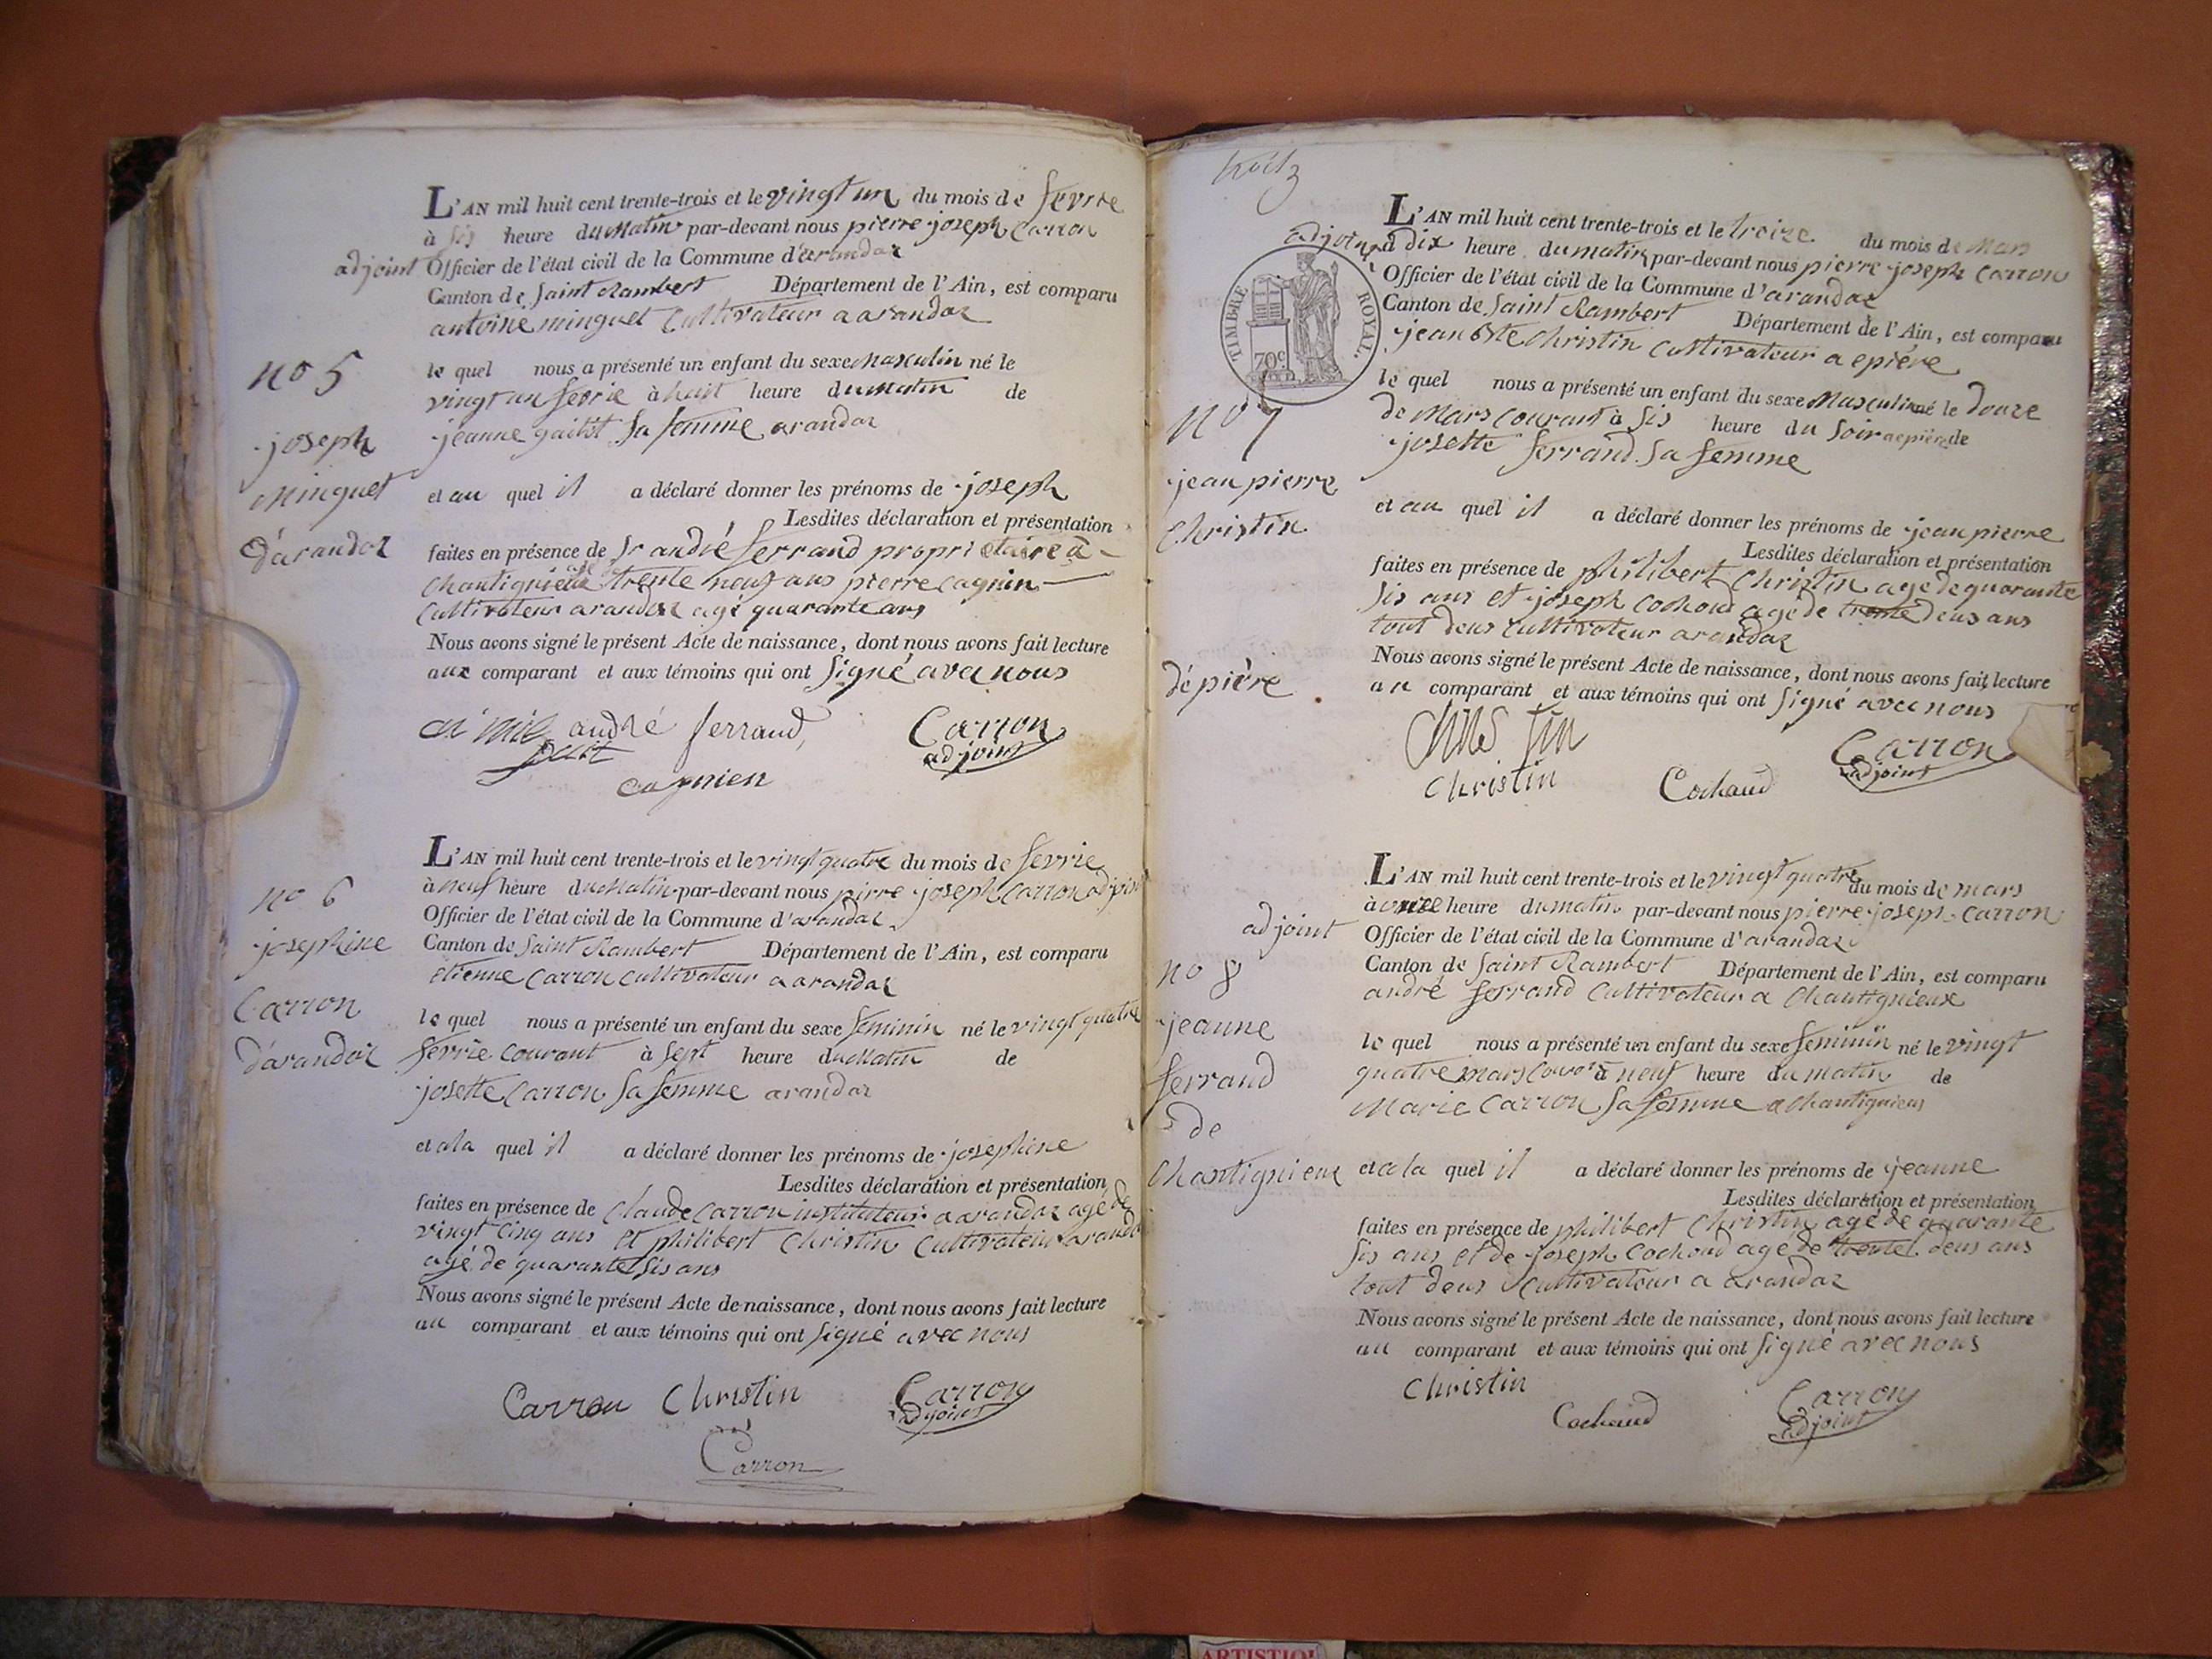 L'AN mil huit cent trente-trois et le vingt un du mois de fevrie
à sis heure du matin par-devant nous pierre joseph Carron
adjoint Officier de l'état civil de la Commune d'arandaz
Canton de Saint Rambert Département de l'Ain, est comparu
antoine minguet Cultivateur a arandaz
no 5
joseph
Minguet
d'arandaz
le quel nous a présenté un enfant du sexe Masculin né le
vingt un fevrie à huit heure du Matin de
jeanne sa femme arandaz
et au quel il a déclaré donner les prénoms de joseph
Lesdites déclaration et présentation
faites en présence de Sr andré ferrand propriétaire à
Chantignieu trente neuf ans pierre Cagnin
Cultivateur arandaz agé quarante ans
Nous avons signé le présent Acte de naissance, dont nous avons fait lecture
aux comparant et aux témoins qui ont signé avec nous
andré ferrand,
Carron
adjoint
cagnien
L'AN mil huit cent trente-trois et le vingt quatre du mois de fevrie
à neuf heure du Matin par-devant nous pirre joseph Carron adjoint
Officier de l'état civil de la Commune d'arandaz
Canton de Saint Rambert Département de l'Ain, est comparu
etienne Carron Cultivateur a arandaz
no 6
josephine
Carron
d'arandaz
le quel nous a présenté un enfant du sexe feminin né le vingt quatre
fevrie Courant à sept heure du Matin de
josette Carron sa femme arandaz
et a la quel il a déclaré donner les prénoms de josephine
Lesdites déclaration et présentation
faites en présence de Claude Carron instituteur a arandaz agé de
vingt Cinq ans et philibert Christin Cultivateur arandaz
agé de quarante sis ans
Nous avons signé le présent Acte de naissance, dont nous avons fait lecture
au comparant et aux témoins qui ont signé avec nous
Carron Christin Carron
adjoint
Carron
L'AN mil huit cent trente-trois et le treize du mois de Mars
adjoint à dix heure du matin par-devant nous pierre joseph Carron
Officier de l'état civil de la Commune d'arandaz
Canton de Saint Rambert Département de l'Ain, est comparu
jean Bte Christin Cultivateur a epiére
TIMBRE ROYAL.
70c
no 7
jean pierre
Christin
d'épiére
le quel nous a présenté un enfant du sexe Masculin né le douze
de Mars Courant à sis heure du soir a epière de
josette ferrand sa femme
et au quel il a déclaré donner les prénoms de jean pierre
Lesdites déclaration et présentation
faites en présence de philibert Christin agé de quarante
sis ans et joseph Cochoud agé de trente deus ans
tout deus Cultivateur arandaz
Nous avons signé le présent Acte de naissance, dont nous avons fait lecture
au comparant et aux témoins qui ont signé avec nous
Christin
Carron
adjoint
Christin Cochaud
L'AN mil huit cent trente-trois et le vingt quatre du mois de mars
à onze heure du matin par-devant nous pierre joseph Carron
adjoint Officier de l'état civil de la Commune d'arandaz
Canton de Saint Rambert Département de l'Ain, est comparu
andré ferrand Cultivateur a Chantignieux
no 8
jeanne
ferrand
de
Chantignieux
le quel nous a présenté un enfant du sexe feminin né le vingt
quatre mars à neuf heure du matin de
Marie Carron sa femme a Chantignieus
et a la quel il a déclaré donner les prénoms de jeanne
Lesdites déclaration et présentation
faites en présence de philibert Christin agé de quarante
sis ans et de joseph Cochoud agé de trente deus ans
tout deus Cultivateur a arandaz
Nous avons signé le présent Acte de naissance, dont nous avons fait lecture
au comparant et aux témoins qui ont signé avec nous
Christin
Cochaud
Carron
adjoint